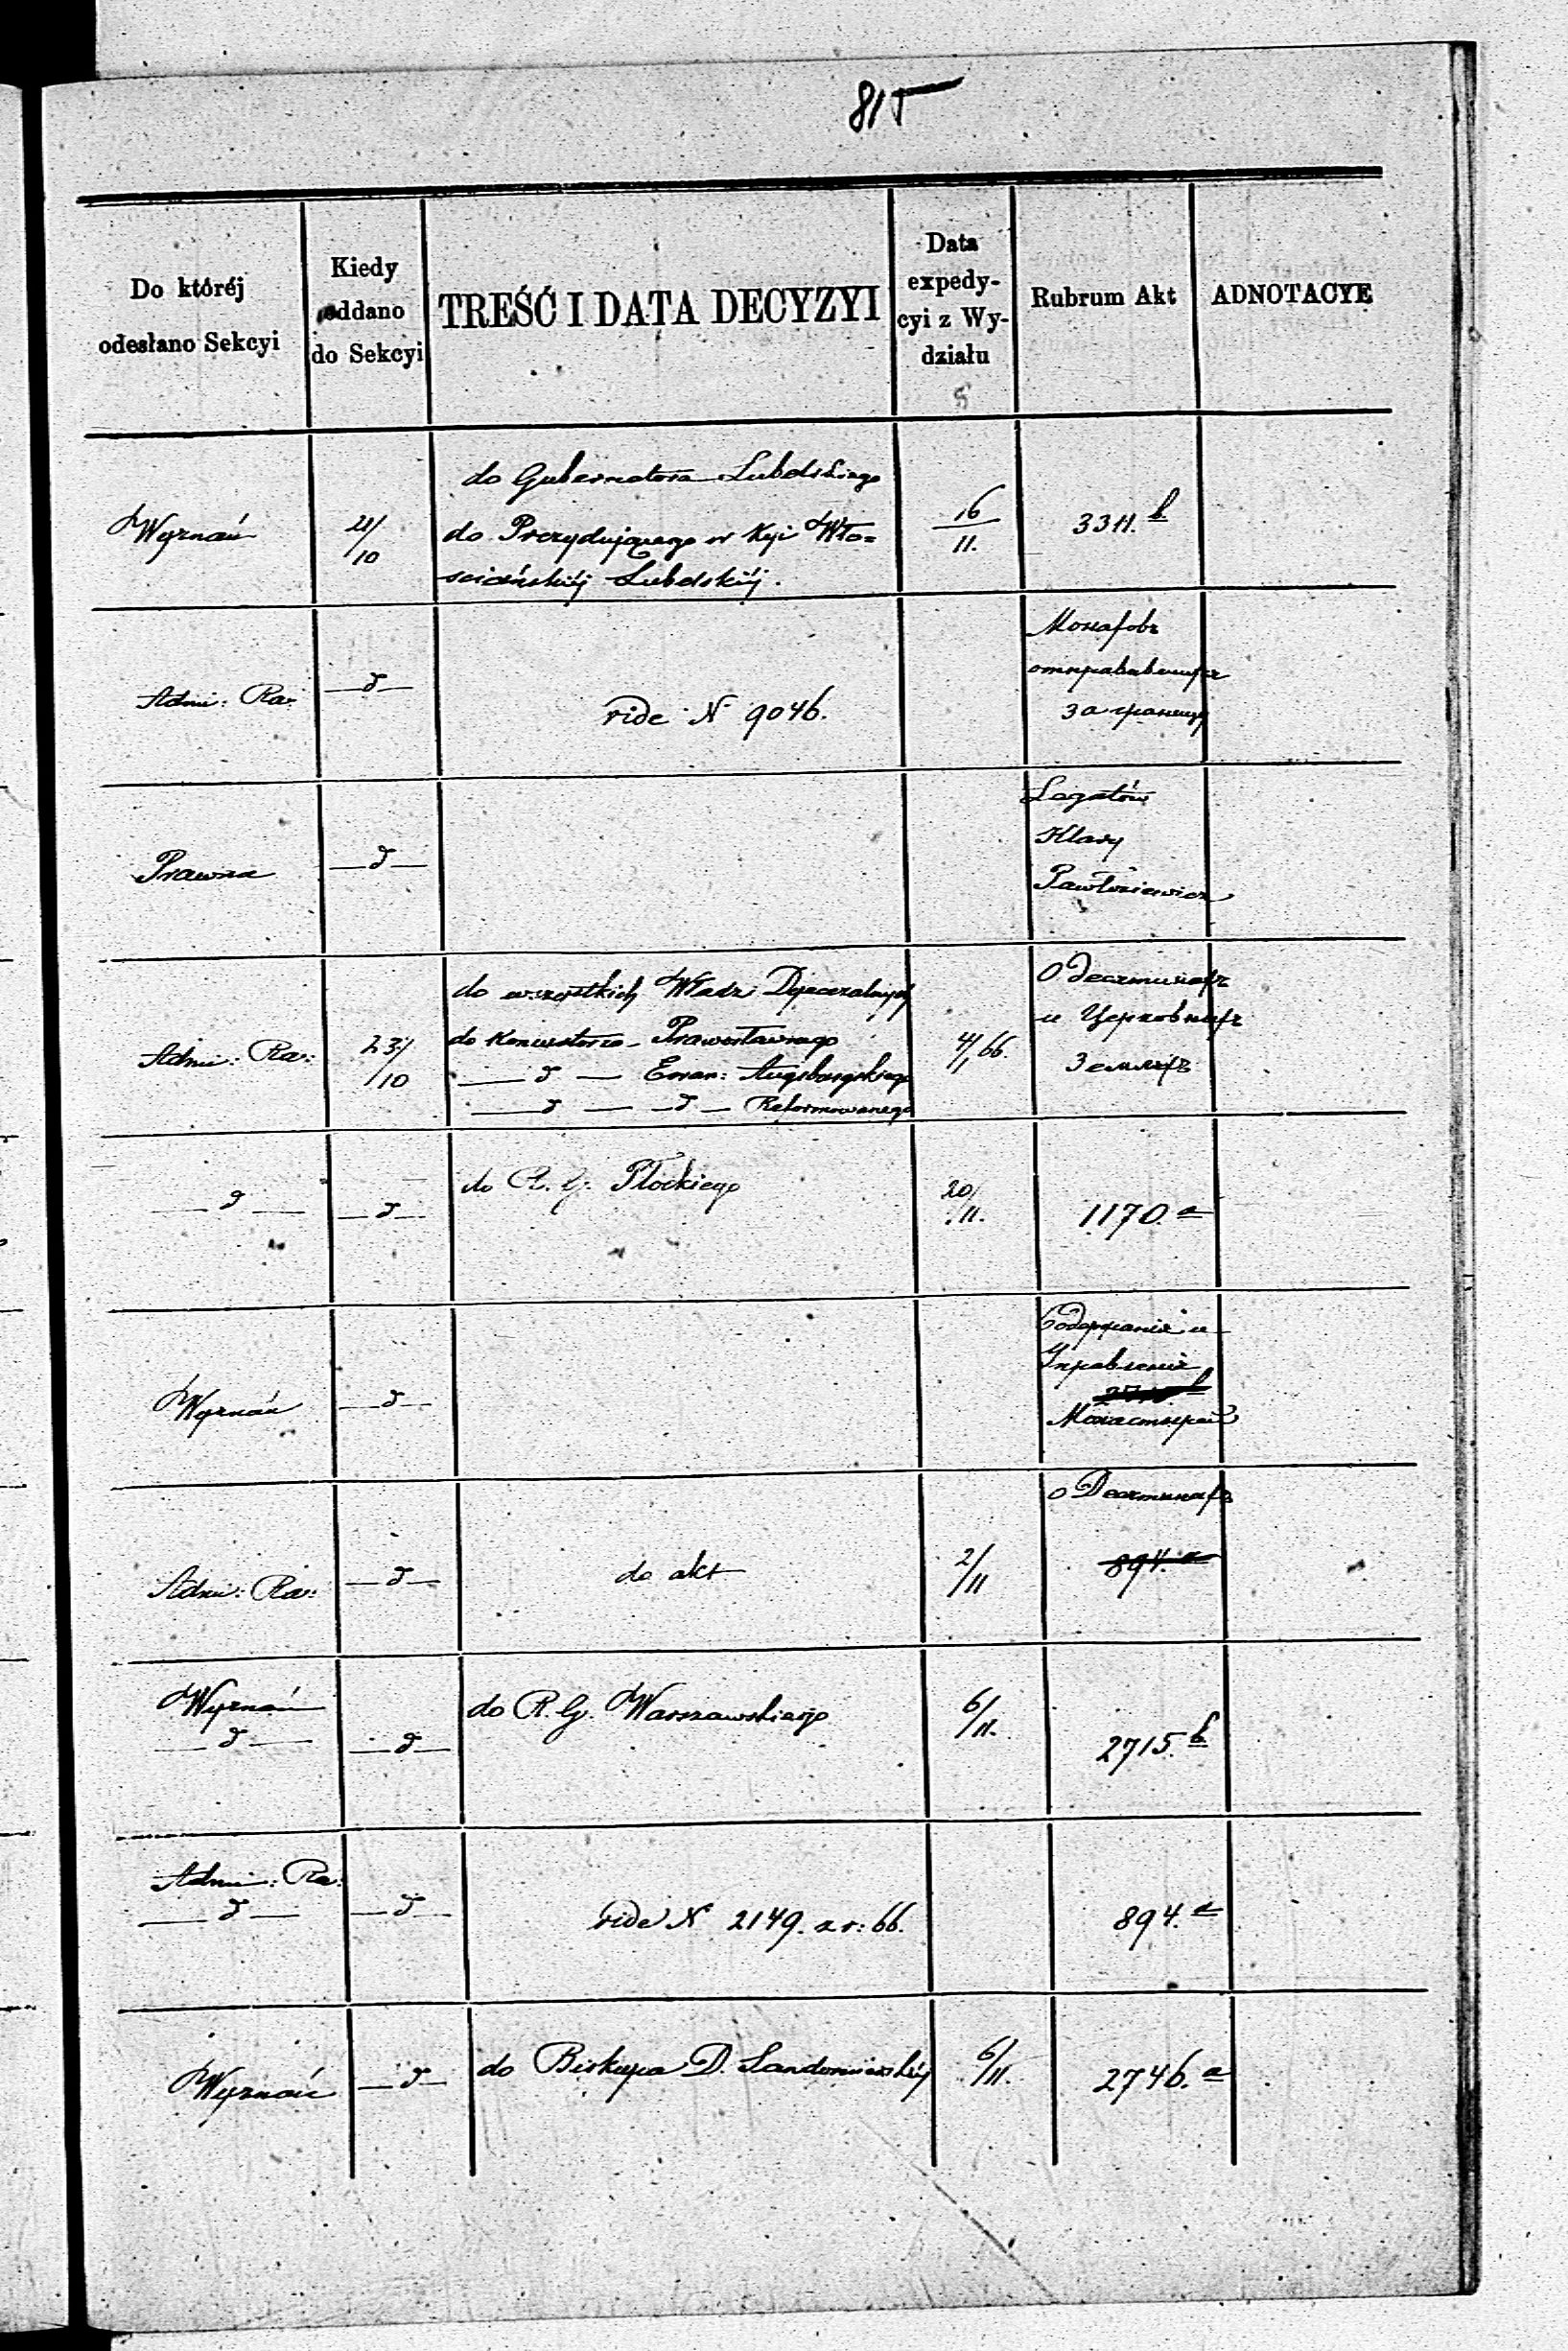 815
Do któréj
odesłano Sekcyi
Kiedy
oddano
do Sekcyi
TREŚĆ I DATA DECYZYI
Data
expedy-
cyi z Wy-
działu
Rubrum Akt
ADNOTACYE
Wyznań
21/10
do Gubernatora Lubelskiego
do Prezydującego w Kyi Wło=
sciańskiéj Lubelskiéj.
16/11.
3311. b
Adm: Ra:
— d —
vide N 9046.
Монаховъ
отправившихся
за границу
Prawna
— d —
Legatów
Klary
Pawłowiewicz
Adm: Ra:
23/10
do wszystkich Władz Dyecezalnych
do Konsystorza Prawosławnego
— d — Ewan: Augsburgskiego
— d — — d — Reformowanego
4/1 66.
О десятинахъ
и Церковныхъ
Земляхъ
— d —
— d —
do R. G. Płockiego
20/11.
1170. a
Wyznań
— d —
Содержанія и
Управленія
Монастырей
Adm: Ra:
— d —
do akt
2/11
о Десятинахъ
894. a
Wyznań
— d —
— d —
do R. G. Warszawskiego
6/11.
2715. b
Adm: Ra:
— d —
— d —
vide N 2149. z r: 66.
894. a
Wyznań
— d —
do Biskupa D. Sandomierskiéj
6/11.
2746. a